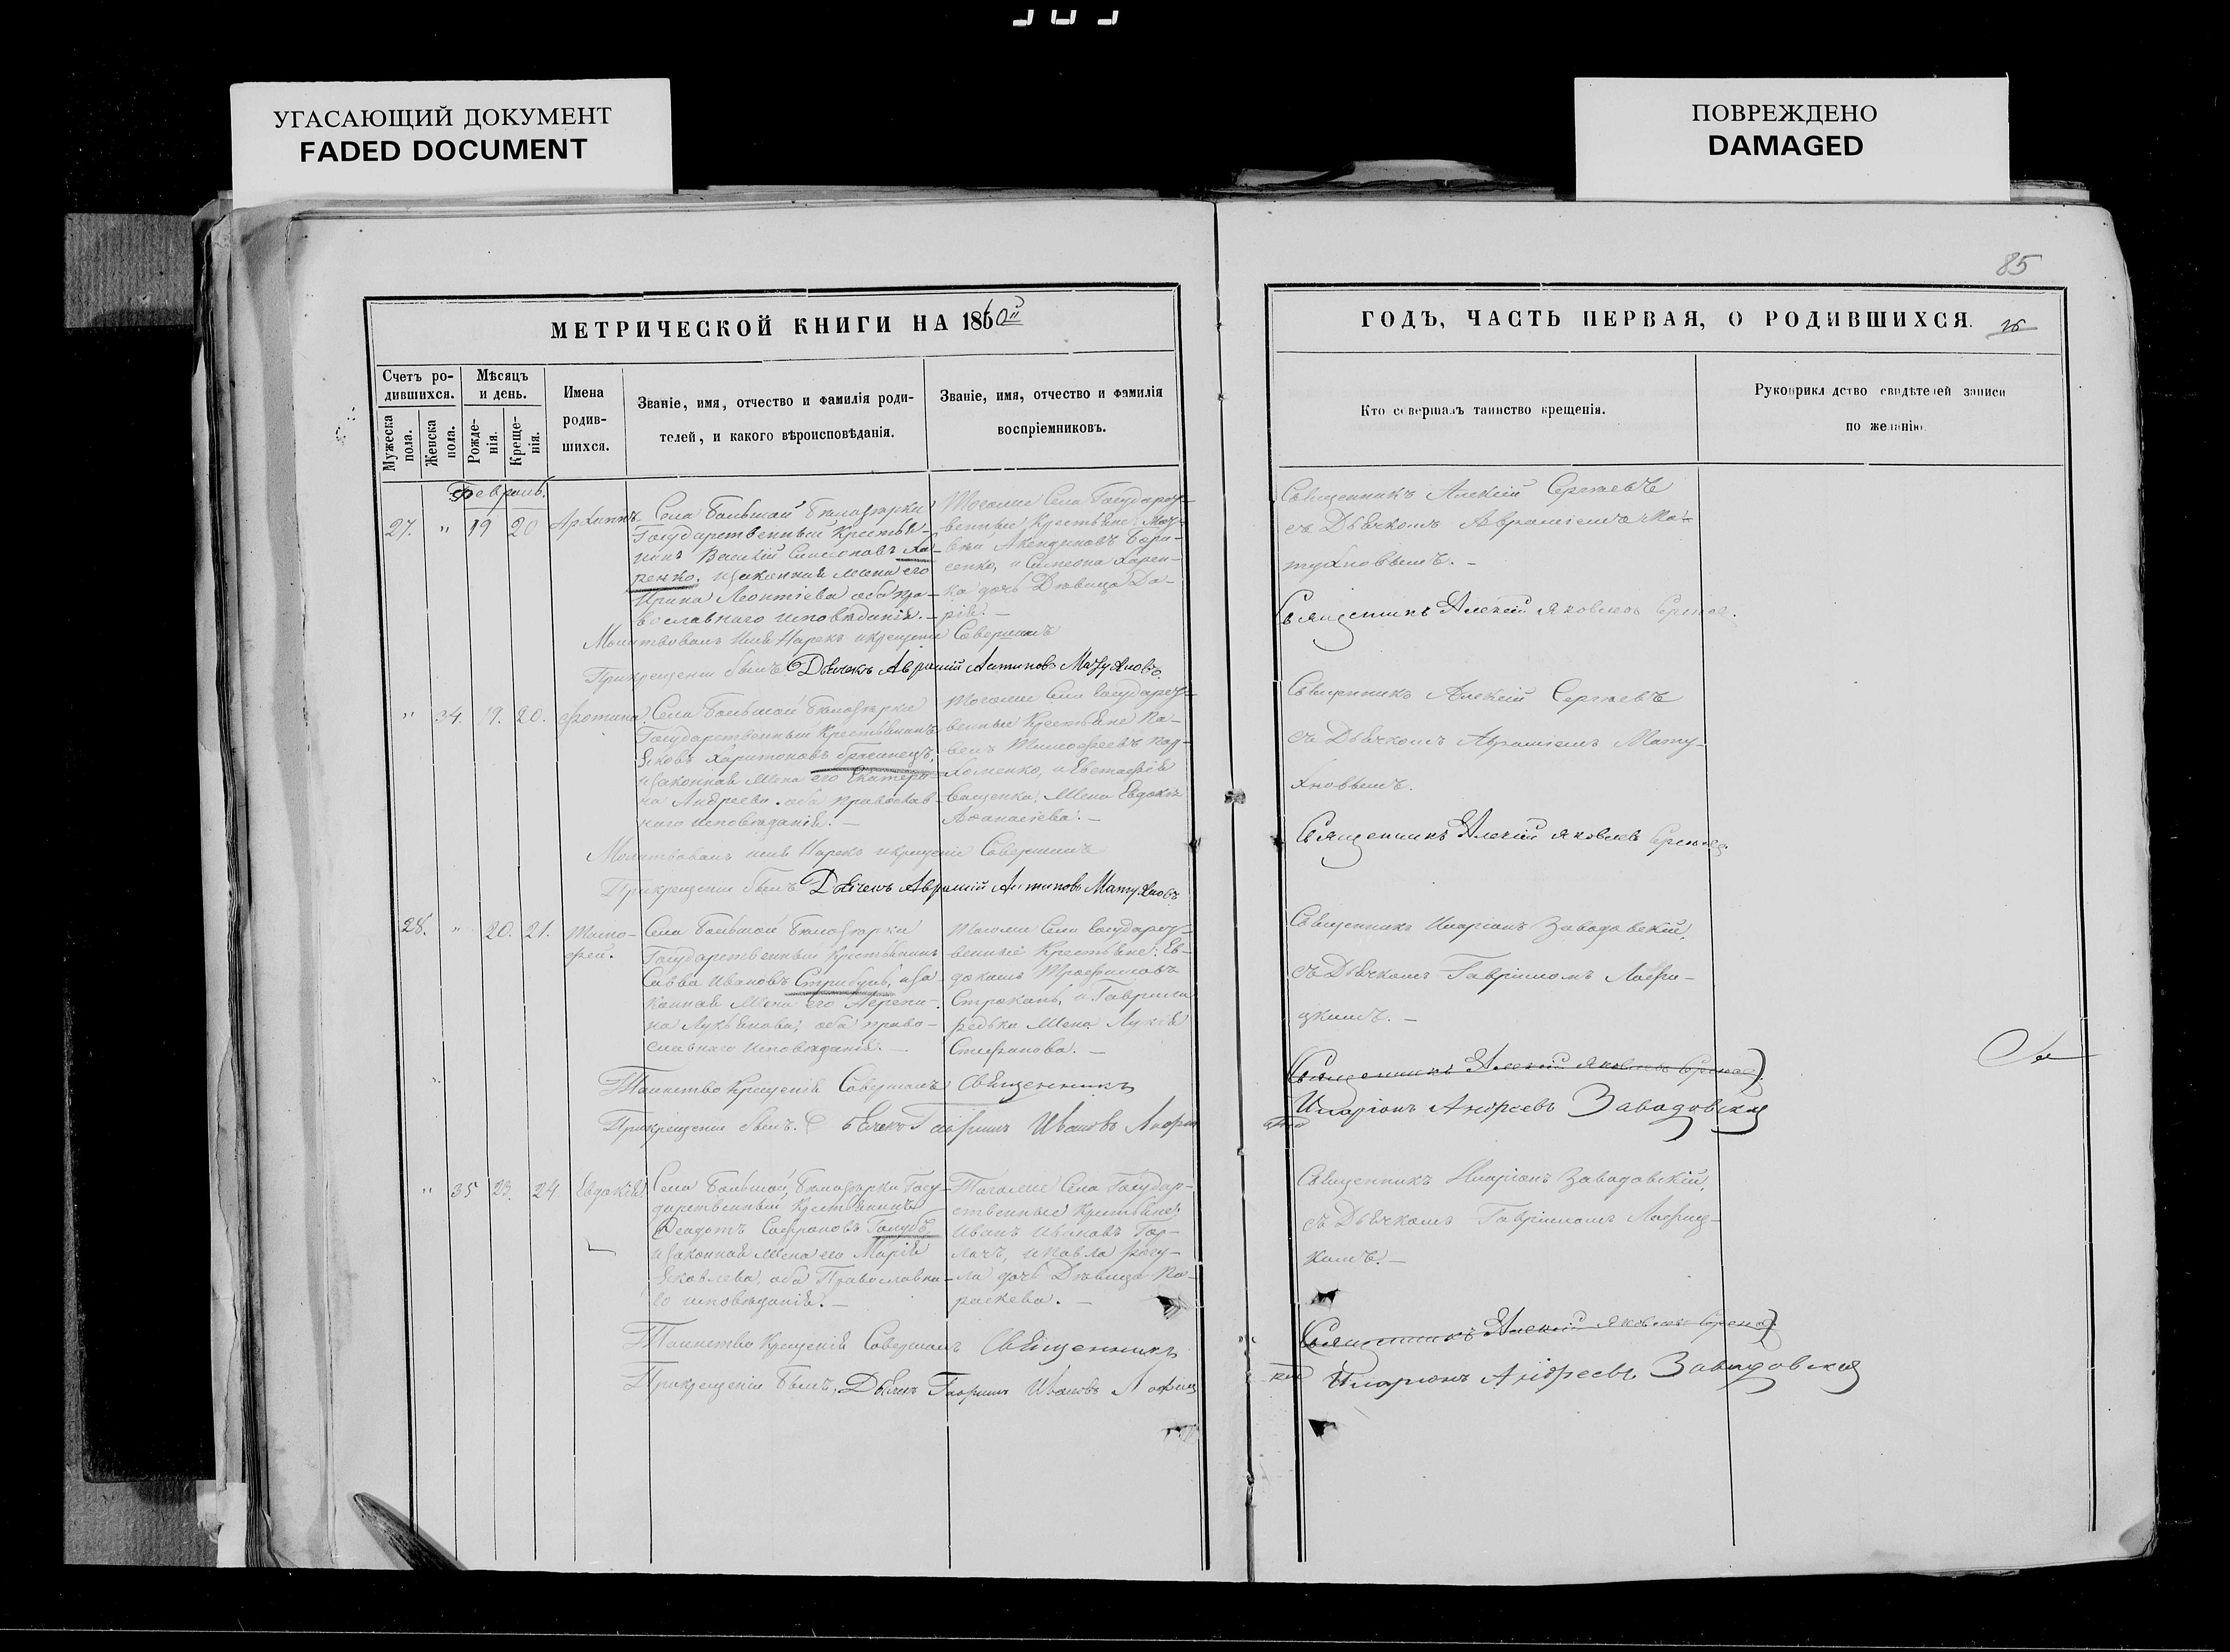 УГАСАЮЩИЙ ДОКУМЕНТ
FADED DOCUMENT
ПОВРЕЖДЕНО
DAMAGED
85
МЕТРИЧЕСКОЙ КНИГИ НА 1860й
ГОДЪ, ЧАСТЬ ПЕРВАЯ, О РОДИВШИХСЯ.
Счетъ ро-
дившихся.
Мужеска пола.
Женска пола.
Мѣсяцъ и день.
Рожде-
нія.
Креще-
нія.
Имена
родив-
шихся.
Званіе, имя, отчество и фамилія роди-
телей, и какого вѣроисповѣданія.
Званіе, имя, отчество и фамилія
воспріемниковъ.
Кто совершалъ таинство крещенія.
Рукоприкладство свидѣтелей записи
по желанію.
Февраль.
27. " 19 20 Архиппъ
Села Большой Бѣлозѣрки
Государственный Крестья-
нинъ Василій Симеоновъ Ха-
ренко, и законная жена его
Ирина Леонтіева оба пра-
вославного исповѣданія. –
Тогоже Села Государст-
венные Крестьяне:
сенко, и Симеона Харен-
ка дочь Дѣвица Да-
рія. –
Священникъ Алексій Сергѣевъ
съ Дьячкомъ Авраміемъ Ма-
тухновымъ. –
Молитвовалъ имя Нарекъ и крещеніе Совершилъ
Священникъ Алексій Яковлевъ
При крещеніи былъ Дьячекъ Аврамій Антиповъ Матухновъ.
" 34. 19. 20. Фотина.
Села Большой Бѣлозѣрки
Государственный Крестьянинъ
Яковъ Харитоновъ
и законная жена его Екатери-
на Андреева. оба православ-
наго исповѣданія. –
Тогоже Села Государст-
венные Крестьяне Па-
велъ Тимофеевъ Пар-
хоменко, и Евстафія
жена Евдокія
Афанасіева. –
Священникъ Алексій Сергѣевъ
съ Дьячкомъ Авраміемъ Мату-
хновымъ.
Молитвовалъ имя Нарекъ и крещеніе Совершилъ
Священникъ Алексій Яковлевъ
При крещеніи былъ Дьячекъ Аврамій Антиповъ Матухновъ
28. " 20. 21. Тимо-
фей.
Села Большой Бѣлозѣрки
Государственный Крестьянинъ
Савва Ивановъ Стрибуль, и за-
конная жена его
на Лукьянова, оба право-
славнаго исповѣданія. –
Тогоже Села Государст-
венные Крестьяне: Ев-
докимъ Трофимовъ
Строкань, и Гавриила
редьки жена Лукія
Стефанова. –
Священникъ Иларіонъ Завадовскій,
съ Дьячкомъ Гавріиломъ Лофи-
цкимъ. –
Таинство Крещенія Совершалъ Священникъ
Священникъ Алексій Яковлевъ
Иларіонъ Андреевъ Завадовскій
При крещеніи былъ. Дьячекъ Гавріилъ Ивановъ
" 35 23. 24 Евдокія.
Села Большой Бѣлозѣрки Госу-
дарственный Крестьянинъ
Феодотъ Софроновъ Голубъ
и законная жена его Марія
Яковлева, оба Православна-
го исповѣданія. –
Тогоже Села Государ-
ственные Крестьяне:
Иванъ Ивановъ Гор-
лачъ, и Павла Рогу-
ли дочь Дѣвица Па-
раскева. –
Священникъ Иларіонъ Завадовскій,
съ Дьячкомъ Гавріиломъ Лофиц-
кимъ. –
Таинство Крещенія Совершалъ Священникъ
Священникъ Алексій Яковлевъ
Иларіонъ Андреевъ Завадовскій
При крещеніи былъ, Дьячекъ Гавріилъ Ивановъ Лофиц
кій